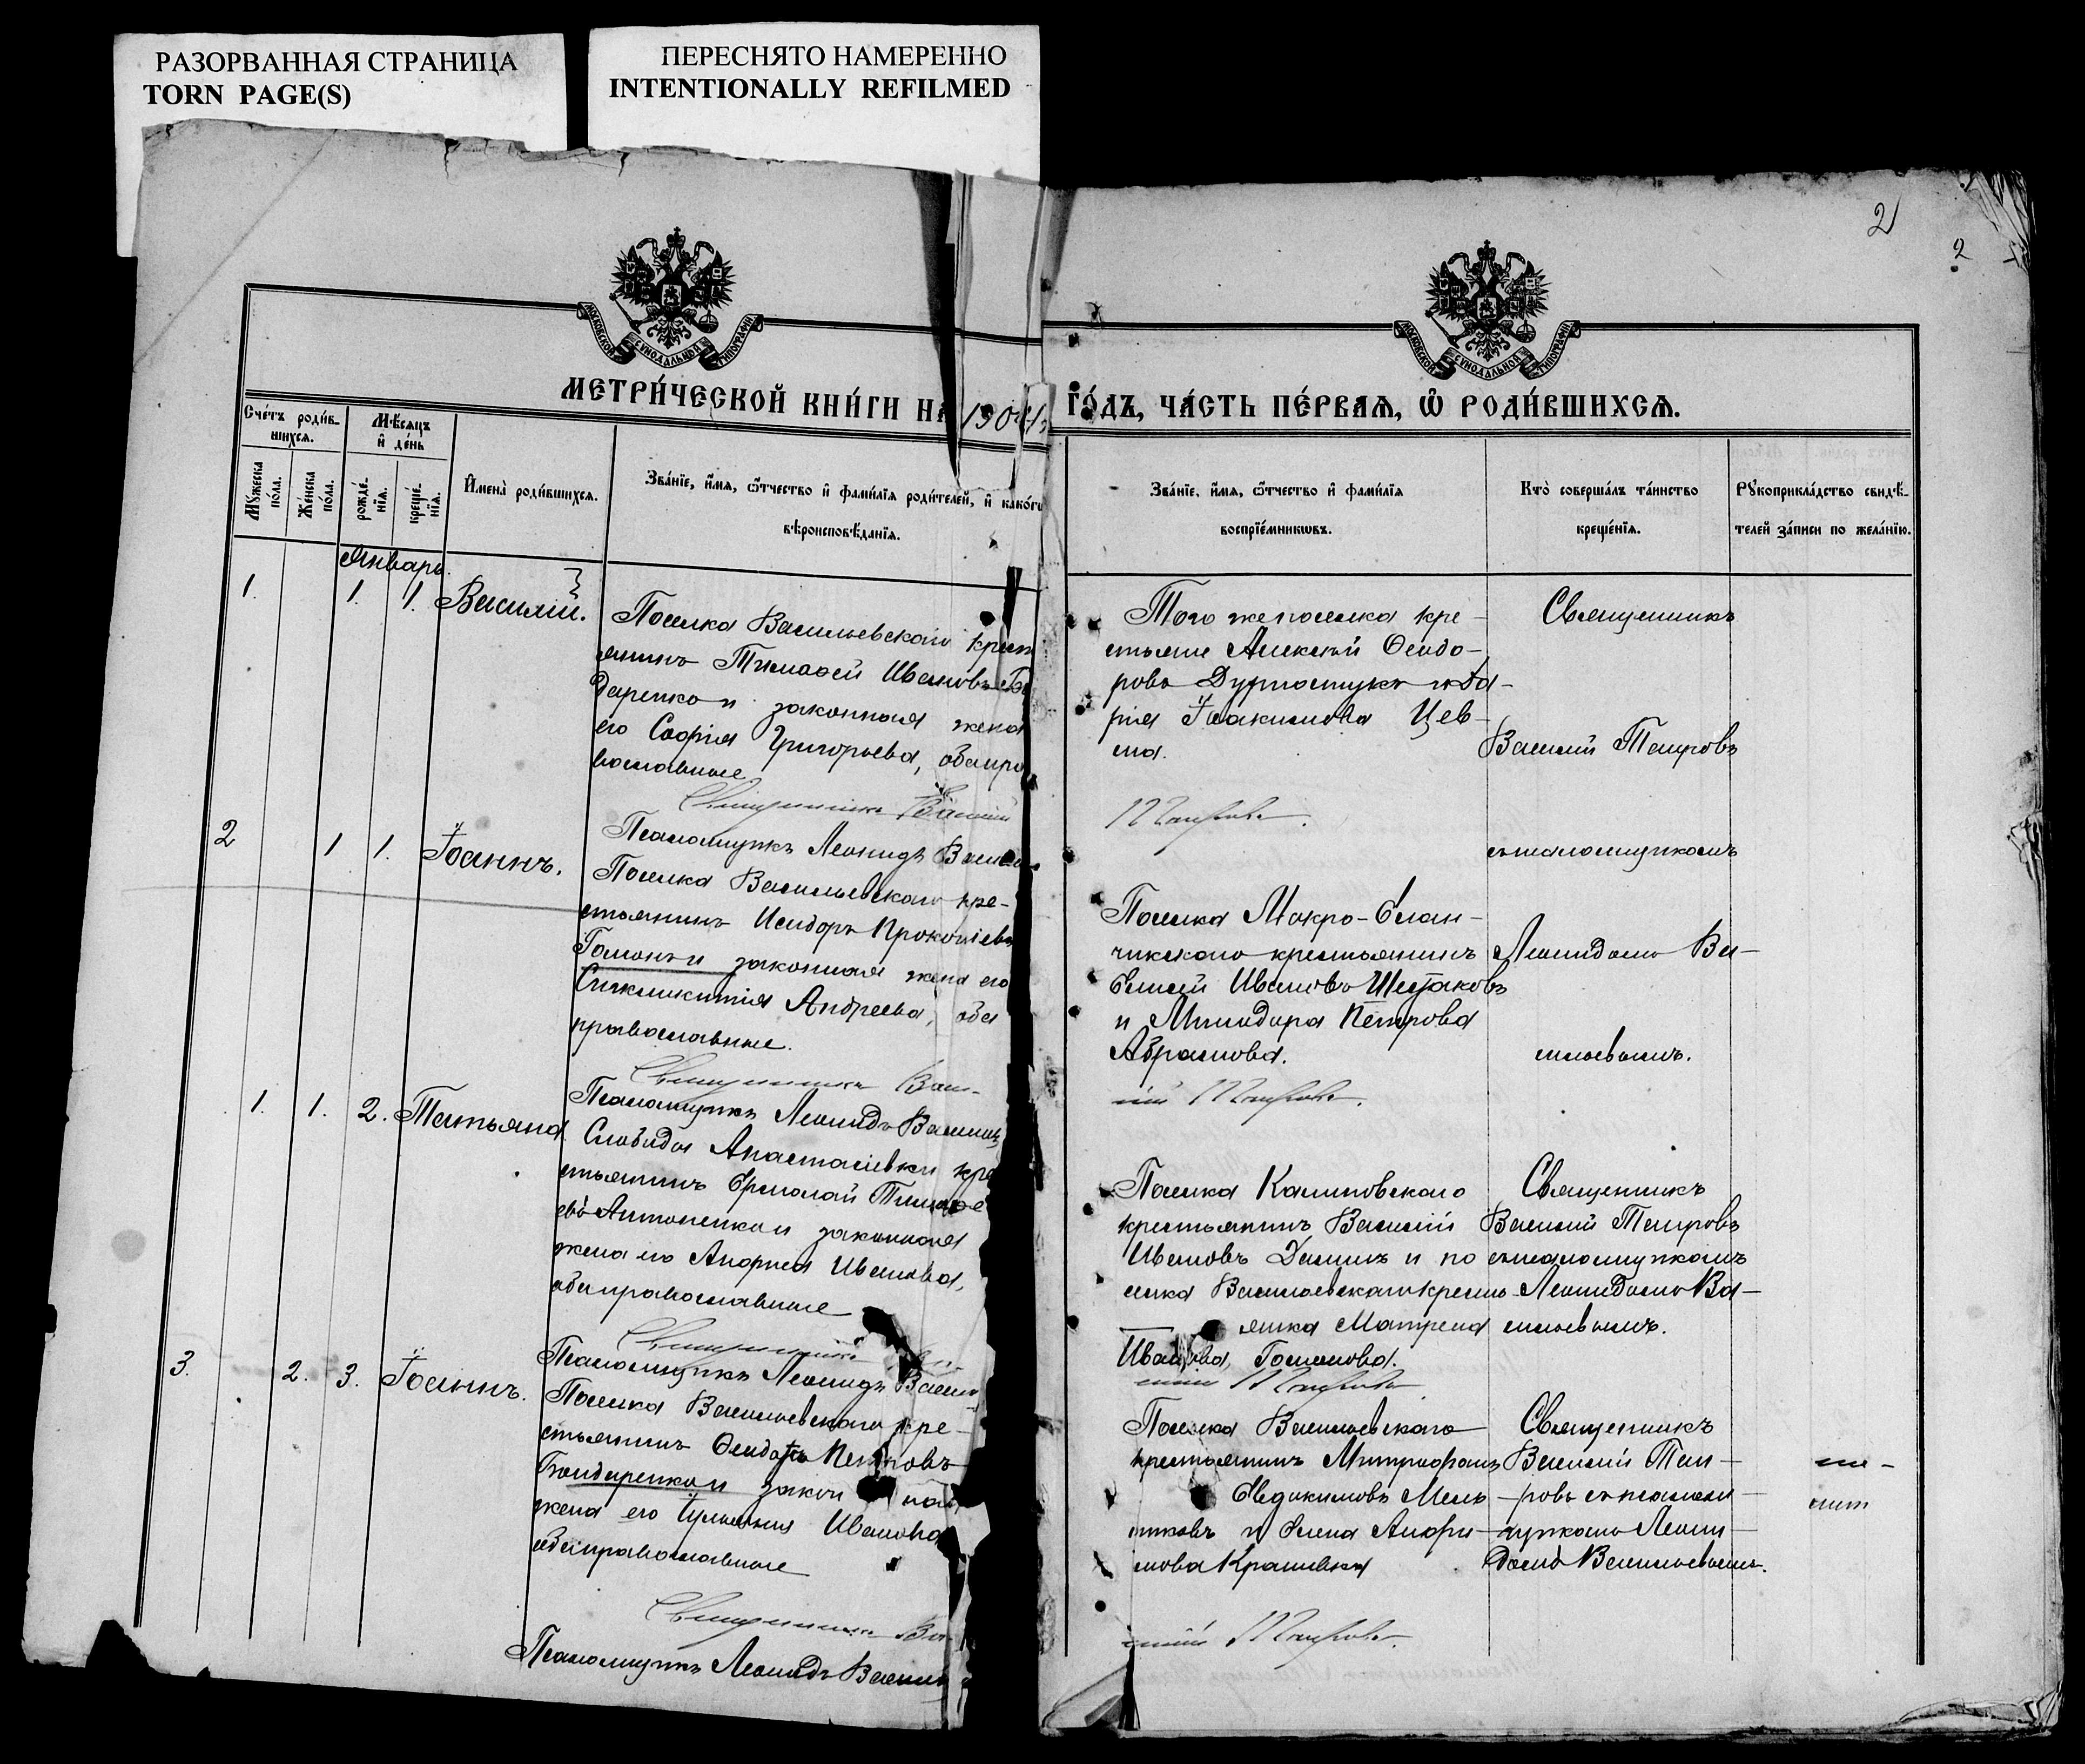 РАЗОРВАННАЯ СТРАНИЦА
TORN PAGE(S)
ПЕРЕСНЯТО НАМЕРЕННО
INTENTIONALLY REFILMED
2
2
МОСКОВСКОЙ СУНОДАЛЬНОЙ ТИПОГРАФІИ
МОСКОВСКОЙ СУНОДАЛЬНОЙ ТИПОГРАФІИ
МЕТРИ́ЧЕСКОЙ КНИ́ГИ НА 1904 ГО́ДЪ, ЧА́СТЬ ПЕ́РВАЯ, Ѡ РОДИ́ВШИХСЯ.
Сче́тъ роди́в-
шихся.
Мꙋжеска по́ла.
Же́нска по́ла.
Мѣ́сяцъ
и҆ де́нь
рожде́-
нїя.
креще́-
нїя.
И҆мена̀ роди́вшихся.
Зва́нїе, и҆́мя, ѻ҆́тчество и҆ фами́лїя роди́телей, и҆ како́гѡ
вѣроисповѣ́данїя.
Зва́нїе, и҆́мя, ѻ҆́тчество и҆ фами́лїя
воспрїе́мникѡвъ.
Кто̀ соверша́лъ та́инство
креще́нїя.
Рꙋкоприкла́дство свидѣ́-
телей за́писи по жела́нїю.
Январь.
1. 1. 1. Василій.
Поселка Васильевскаго крест
янинъ Тимоѳей Ивановъ Бо
даренко и законная жена
его Софія Григорьева, оба пра
вославные
Священникъ Василій
Псаломщикъ Леонидъ Василь
Того же поселка кре-
стьяне Алексѣй Ѳеодо-
ровъ Дурностукъ и Да-
рія Іоакимова Цев-
ма.
Петровъ.
Священникъ
Василій Петровъ
съ псаломщикомъ
Леонидомъ Ва-
сильевымъ.
2 1 1. Іоаннъ.
Поселка Васильевскаго кре-
стьянинъ Исидоръ Прокопіевъ
Гомонъ и законная жена его
Синклитикія Андреева, оба
православные.
Священникъ Васи-
Псаломщикъ Леонидъ Василь
Поселка Мокро-Елан-
чикскаго крестьянинъ
Елисей Ивановъ Шестаковъ
и Минодора Петрова
Абрамова.
лій Петровъ.
1. 1. 2. Татьяна
Слободы Анастасіевки кре
стьянинъ Ермолай Тимоѳе
евъ Антоненко и законная
жена его Марія Иванова,
оба православные
Священникъ Ва-
Псаломщикъ Леонидъ Василь
Поселка Калиновскаго
крестьянинъ Василій
Ивановъ Деминъ и по
селка Васильевскаго кресть-
янка Матрена
Иванова Гомонова.
силій Петровъ
Священникъ
Василій Петровъ
съ псаломщикомъ
Леонидомъ Ва-
сильевымъ.
3. 2. 3. Іоаннъ.
Поселка Васильевскаго кре-
стьянинъ Ѳеодоръ Петровъ
Бондаренко и закон ная
жена его Іуліанія Иванова
оба православные
Священникъ Ва-
Псаломщикъ Леонидъ Василь
Поселка Васильевскаго
крестьянинъ Митрофанъ
Евдокимовъ Мель-
никовъ и Елена
Кравченко
силій Петровъ.
Священникъ
Василій Пет-
ровъ съ псалом-
щикомъ Леони-
домъ Васильевымъ.